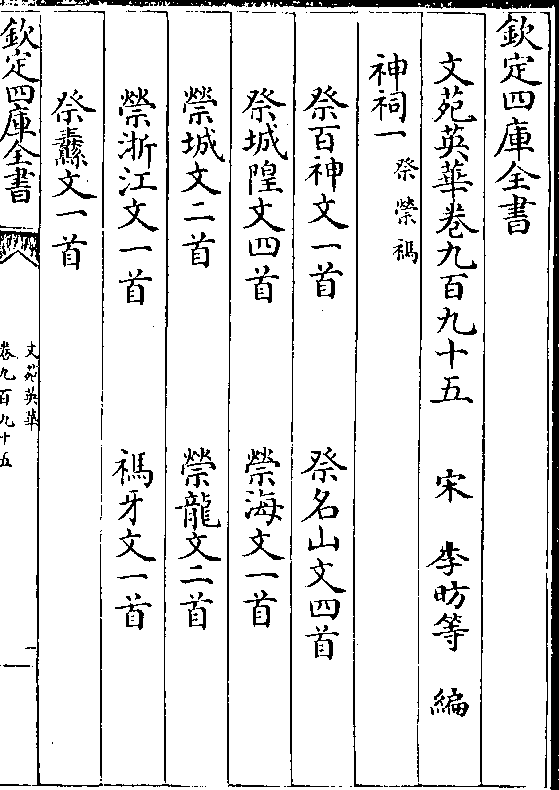 欽定四庫全書
文苑英華卷九百九十五　宋　李昉等　編
神祠一　祭禜禡
祭百神文一首　祭名山文四首
祭城隍文四首　禜海文一首
禜城文二首　禜龍文二首
禜浙江文一首　禡牙文一首
祭纛文一首
欽定四庫全書
文苑英華
卷九百九十五
一